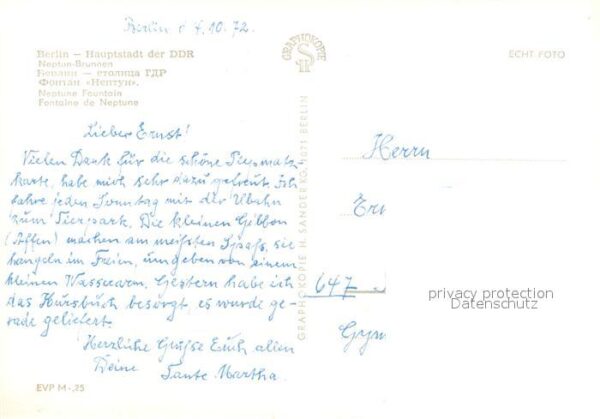 Berlin d 4.10.72.
Berlin – Hauptstadt der DDR
Neptun-Brunnen
Берлин – столица ГДР
Фонтан «Нептун».
Neptune Fountain
Fontaine de Neptune
GRAPHOKOPIE
ECHT-FOTO
Lieber Ernst!
Vielen Dank für die schöne
karte, habe mich sehr dazu gefreut. Ich
fahre jeden Sonntag mit der Ubahn
zum Tierpark. Die kleinen Gibbon
(Affen) machen am meisten Spaß, sie
hangeln im Freien, umgeben von einem
kleinen Wasserarm. Gestern habe ich
das Kursbuch besorgt es wurde ge-
rade geliefert.
Herzliche Grüße Euch allen
Deine Tante Martha.
EVP M -,25
GRAPHOKOPIE H. SANDER KG, 1071 BERLIN
Herrn
647
privacy protection
Datenschutz